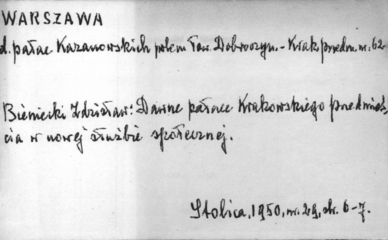 WARSZAWA
d. pałac Kazanowskich potem Tow. Dobroczyn. - Krak. przedm. nr. 62
Bieniecki Zdzisław: Dawne pałace Krakowskiego przedmieś-
cia w nowej służbie społecznej.
Stolica, 1950, nr. 29, str. 6-7.